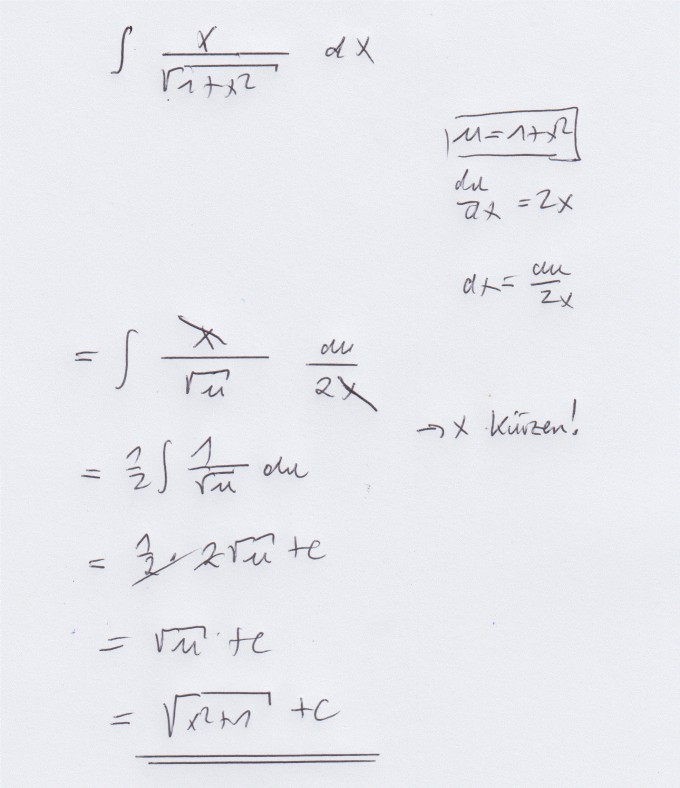 ∫ x/√(1+x²) dx
u = 1+x²
du/dx = 2x
dx = du/2x
= ∫ x/√u du/2x
→ x kürzen!
= 1/2 ∫ 1/√u du
= 1/2 · 2√u + c
= √u + c
= √(x²+1) + c